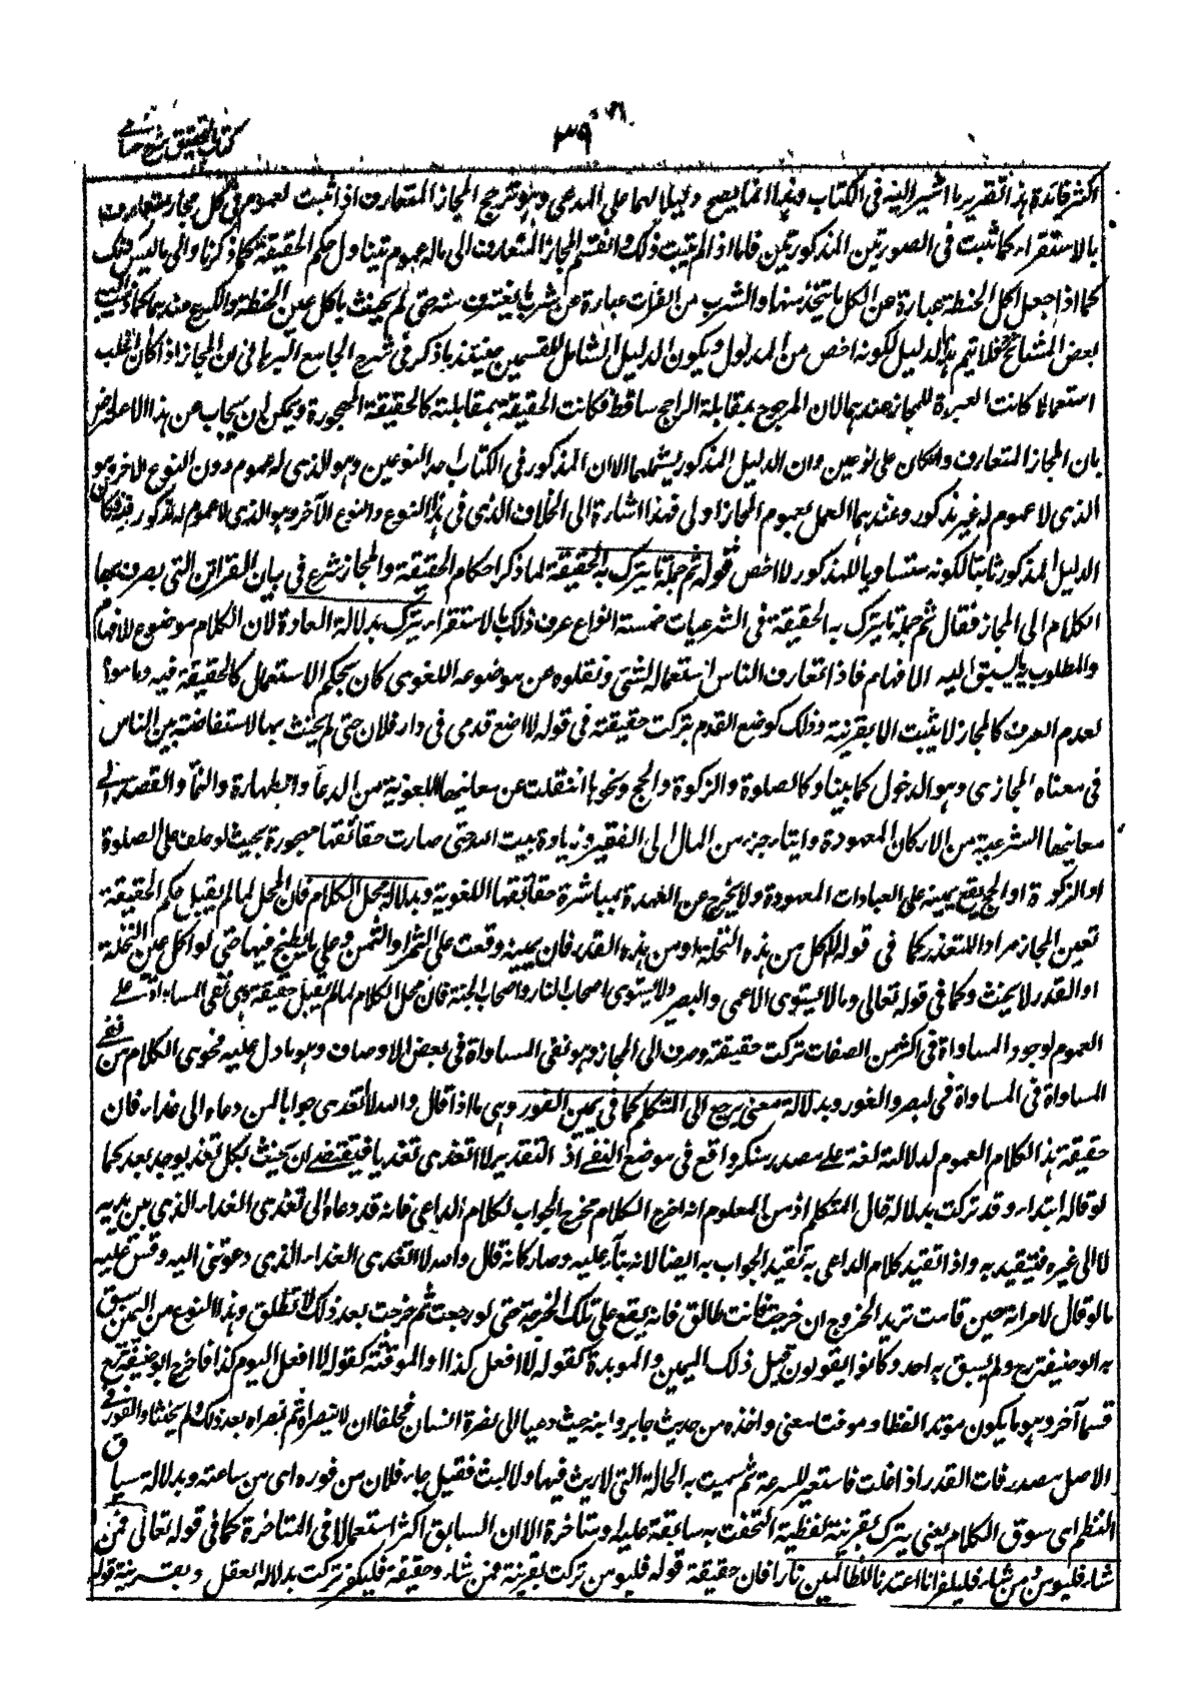 كتاب التحقيق شرح حسامى
٣٩
اكثر فائدة هذا التقرير ما اشير اليه فى الكتاب وهذا انما يصح دليلا لهما على المدعى وهو ترجح المجاز المتعارف اذا ثبت لعموم فى كل مجاز متعارف
بالاستقراء كما ثبت فى الصورتين المذكورتين فاما اذا لم يثبت ذلك وانقسم المجاز المتعارف الى ماله عموم يتناول حكم الحقيقة كما ذكرنا والى ما ليس كذلك
كما اذا جعل اكل الحنطة عبارة عن اكل ما يتخذ منها والشرب من الفرات عبارة عن شرب ما يغترف منه حتى لم يحنث باكل عين الحنطة والكرع عندهما كما ذهب اليه
بعض المشائخ فلا يتم هذا الدليل لكونه اخص من المدلول ويكون الدليل الشامل للقسمين حينئذ ما ذكر فى شرح الجامع البرهانى ان المجاز اذا كان اغلب
استعمالا كانت العبرة للمجاز عندهما لان المرجوح بمقابلة الراجح ساقط فكانت الحقيقة بمقابلته كالحقيقة المهجورة ويمكن ان يجاب عن هذا الاعتراض
بان المجاز المتعارف وان كان على نوعين وان الدليل المذكور يشملهما الا ان المذكور فى الكتاب احد النوعين وهو الذى له عموم دون النوع الاخر وهو
الذى لا عموم له غير مذكور وعندهما العمل بعموم المجاز اولى فهذا اشارة الى الخلاف الذى فى هذا النوع والنوع الآخر وهو الذى لا عموم له مذكور فيه فكان
الدليل المذكور ثابتا لكونه متساويا للمذكور لا اخص قوله ثم جملة ما يترك به الحقيقة لما ذكر احكام الحقيقة والمجاز شرع فى بيان القرائن التى يصرف بها
الكلام الى المجاز فقال ثم جملة ما يترك به الحقيقة فى الشرعيات خمسة انواع عرف ذلك بالاستقراء يترك بدلالة العادة لان الكلام موضوع للافهام
والمطلوب به ما يسبق اليه الافهام فاذا تعارف الناس استعماله لشئ ونقلوه عن موضوعه اللغوى كان بحكم الاستعمال كالحقيقة فيه وما سواه
لعدم العرف كالمجاز لا يثبت الا بقرينة وذلك كوضع القدم بتركت حقيقته فى قوله لا اضع قدمى فى دار فلان حتى لم يحنث بها لاستفاضته بين الناس
فى معناه المجازى وهو الدخول كما بينا وكالصلوة والزكوة والحج ونحوها انتقلت عن معانيها اللغوية من الدعاء والطهارة والنماء والقصد الى
معانيها الشرعية من الاركان المعهودة وايتاء جزء من المال الى الفقير وزيادة بيت الله حتى صارت حقائقها مهجورة بحيث لو حلف على الصلوة
او الزكوة او الحج يقع يمينه على العبادات المعهودة ولا يخرج عن العهدة بمباشرة حقائقها اللغوية وبدلالة محل الكلام فان المحل لما لم يقبل حكم الحقيقة
تعين المجاز مرادا للتعذر كما فى قوله لا آكل من هذه النخلة او من هذه القدر فان يمينه وقعت على الثمر او الثمن وعلى ما يطبخ فيها حتى لو اكل عين النخلة
او القدر لا يحنث وكما فى قوله تعالى وما لا يستوى الاعمى والبصير ولا يستوى اصحاب النار واصحاب الجنة فان محل الكلام لما لم يقبل حقيقته وهى نفى المساواة على
العموم لوجود المساواة فى اكثر من الصفات تركت حقيقته وصرف الى المجاز وهو نفى المساواة فى بعض الاوصاف وهو ما دل عليه فحوى الكلام من نفى
المساواة فى المساواة فى البصر والفوز وبدلالة معنى يرجع الى المتكلم كما فى يمين الفور وهى ما اذا قال والله لا اتغدى جوابا لمن دعاه الى غداء فان
حقيقة هذا الكلام العموم لدلالته لغة على مصدر منكر واقع فى موضع النفى اذ التقدير لا اتغدى تغديا فيقتضى ان يحنث بكل تغد يوجد بعد كما
لو قاله ابتداء وقد تركت بدلالة قال المتكلم اذ من المعلوم انه اخرج الكلام مخرج الجواب لكلام الداعى فانه قد دعاه الى تغدى الغداء الذى بين يديه
لا الى غيره فيتقيد به واذا تقيد كلام الداعى به تقيد الجواب به ايضا لانه بناء عليه وصار كانه قال والله لا اتغدى الغداء الذى دعوتنى اليه وقس عليه
ما لو قال لامرأته حين قامت تريد الخروج ان خرجت فانت طالق فانه يقع على تلك الخرجة حتى لو رجعت ثم خرجت بعد ذلك لا تطلق وهذا النوع من اليمين سبق
به ابو حنيفة رح ولم يسبق به احد وكانوا يقولون قبل ذلك اليمين المؤبدة كقوله لا افعل كذا او الموقتة كقوله لا افعل اليوم كذا فاخرج ابو حنيفة رح
قسما آخر وهو ما يكون مؤبدا لفظا وموقتا معنى واخذه من حديث جابر وابنه حيث دعيا الى نصرة انسان فحلفا ان لا ينصراه ثم نصراه بعد ذلك ولم يحنثا والفور فى
الاصل مصدر فارت القدر اذا غلت فاستعير للسرعة ثم سميت به الحالة التى لا ريث فيها ولا لبث فقيل جاء فلان من فوره اى من ساعته وبدلالة سياق
النظم اى سوق الكلام يعنى يترك بقرينة لفظية التحقت به سابقة عليه او متاخرة الا ان السابق اكثر استعمالا فى المتاخرة كما فى قوله تعالى فمن
شاء فليؤمن ومن شاء فليكفر انا اعتدنا للظالمين نارا فان حقيقة قوله فليؤمن تركت بقرينة فمن شاء وحقيقة فليكفر تركت بدلالة العقل وبقرينة قوله